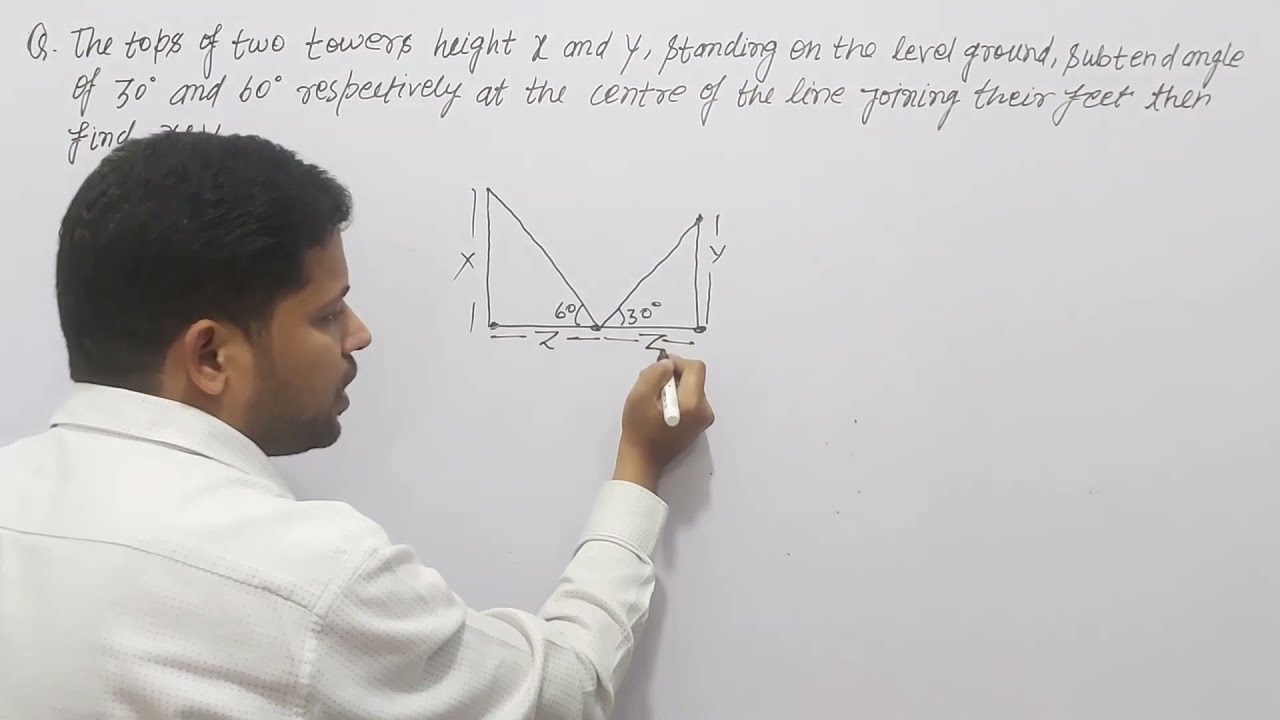 Q. The tops of two towers height x and y, standing on the level ground, subtend angle
of 30° and 60° respectively at the centre of the line joining their feet then
find
x
y
60
30°
z
z